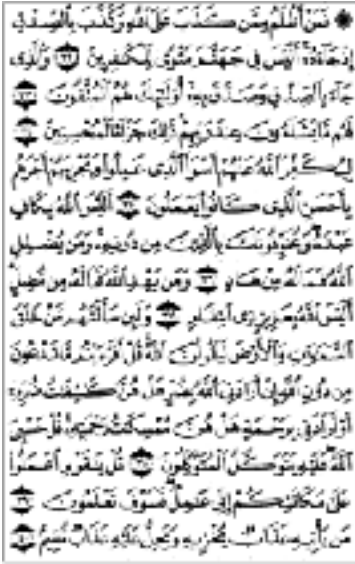 ۞ فَمَنْ أَظْلَمُ مِمَّن كَذَبَ عَلَى ٱللَّهِ وَكَذَّبَ بِٱلصِّدْقِ
إِذْ جَآءَهُۥٓ أَلَيْسَ فِى جَهَنَّمَ مَثْوًى لِّلْكَٰفِرِينَ ٣٢ وَٱلَّذِى
جَآءَ بِٱلصِّدْقِ وَصَدَّقَ بِهِۦٓ أُو۟لَٰٓئِكَ هُمُ ٱلْمُتَّقُونَ ٣٣
لَهُم مَّا يَشَآءُونَ عِندَ رَبِّهِمْ ذَٰلِكَ جَزَآءُ ٱلْمُحْسِنِينَ ٣٤
لِيُكَفِّرَ ٱللَّهُ عَنْهُمْ أَسْوَأَ ٱلَّذِى عَمِلُوا۟ وَيَجْزِيَهُمْ أَجْرَهُم
بِأَحْسَنِ ٱلَّذِى كَانُوا۟ يَعْمَلُونَ ٣٥ أَلَيْسَ ٱللَّهُ بِكَافٍ
عَبْدَهُۥ وَيُخَوِّفُونَكَ بِٱلَّذِينَ مِن دُونِهِۦ وَمَن يُضْلِلِ
ٱللَّهُ فَمَا لَهُۥ مِنْ هَادٍ ٣٦ وَمَن يَهْدِ ٱللَّهُ فَمَا لَهُۥ مِن مُّضِلٍّ
أَلَيْسَ ٱللَّهُ بِعَزِيزٍ ذِى ٱنتِقَامٍ ٣٧ وَلَئِن سَأَلْتَهُم مَّنْ خَلَقَ
ٱلسَّمَٰوَٰتِ وَٱلْأَرْضَ لَيَقُولُنَّ ٱللَّهُ قُلْ أَفَرَءَيْتُم مَّا تَدْعُونَ
مِن دُونِ ٱللَّهِ إِنْ أَرَادَنِىَ ٱللَّهُ بِضُرٍّ هَلْ هُنَّ كَٰشِفَٰتُ ضُرِّهِۦٓ
أَوْ أَرَادَنِى بِرَحْمَةٍ هَلْ هُنَّ مُمْسِكَٰتُ رَحْمَتِهِۦ قُلْ حَسْبِىَ
ٱللَّهُ عَلَيْهِ يَتَوَكَّلُ ٱلْمُتَوَكِّلُونَ ٣٨ قُلْ يَٰقَوْمِ ٱعْمَلُوا۟
عَلَىٰ مَكَانَتِكُمْ إِنِّى عَٰمِلٌ فَسَوْفَ تَعْلَمُونَ ٣٩
مَن يَأْتِيهِ عَذَابٌ يُخْزِيهِ وَيَحِلُّ عَلَيْهِ عَذَابٌ مُّقِيمٌ ٤٠